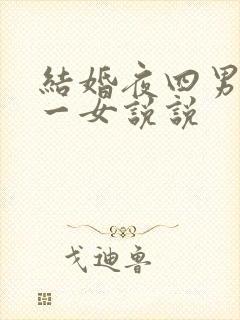 結婚夜四男
一女說說
戈迪魯